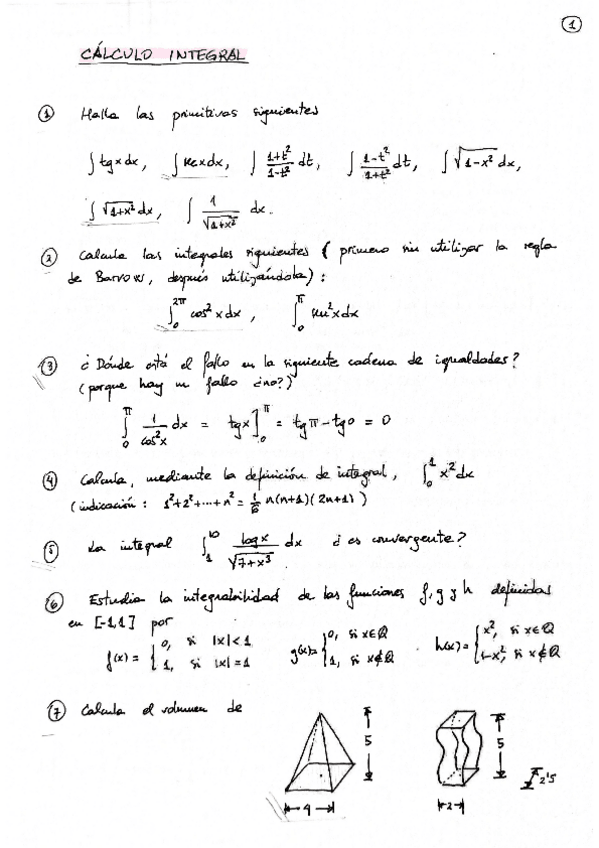 1
CÁLCULO INTEGRAL
① Halla las primitivas siguientes
∫ tg x dx, ∫ sec x dx, ∫ (1+t²)/(1-t²) dt, ∫ (1-t²)/(1+t²) dt, ∫ √(1-x²) dx,
∫ √(1+x²) dx, ∫ 1/√(1+x²) dx.
② Calcula las integrales siguientes (primero sin utilizar la regla
de Barrow, después utilizándola):
∫₀^{2π} cos² x dx, ∫₀^π sen² x dx
③ ¿Dónde está el fallo en la siguiente cadena de igualdades?
(porque hay un fallo ¿no?)
∫₀^π 1/cos²x dx = tg x]₀^π = tg π - tg 0 = 0
④ Calcula, mediante la definición de integral, ∫₀¹ x² dx
(indicación: 1²+2²+...+n² = 1/6 n(n+1)(2n+1))
⑤ La integral ∫₁^{10} log x/√(7+x³) dx ¿es convergente?
⑥ Estudia la integrabilidad de las funciones f, g y h definidas
en [-1,1] por
f(x) = { 0, si |x|<1; 1, si |x|=1 g(x) = { 0, si x∈Q; 1, si x∉Q h(x) = { x², si x∈Q; 1-x², si x∉Q
⑦ Calcula el volumen de
5
4
5
2'5
2